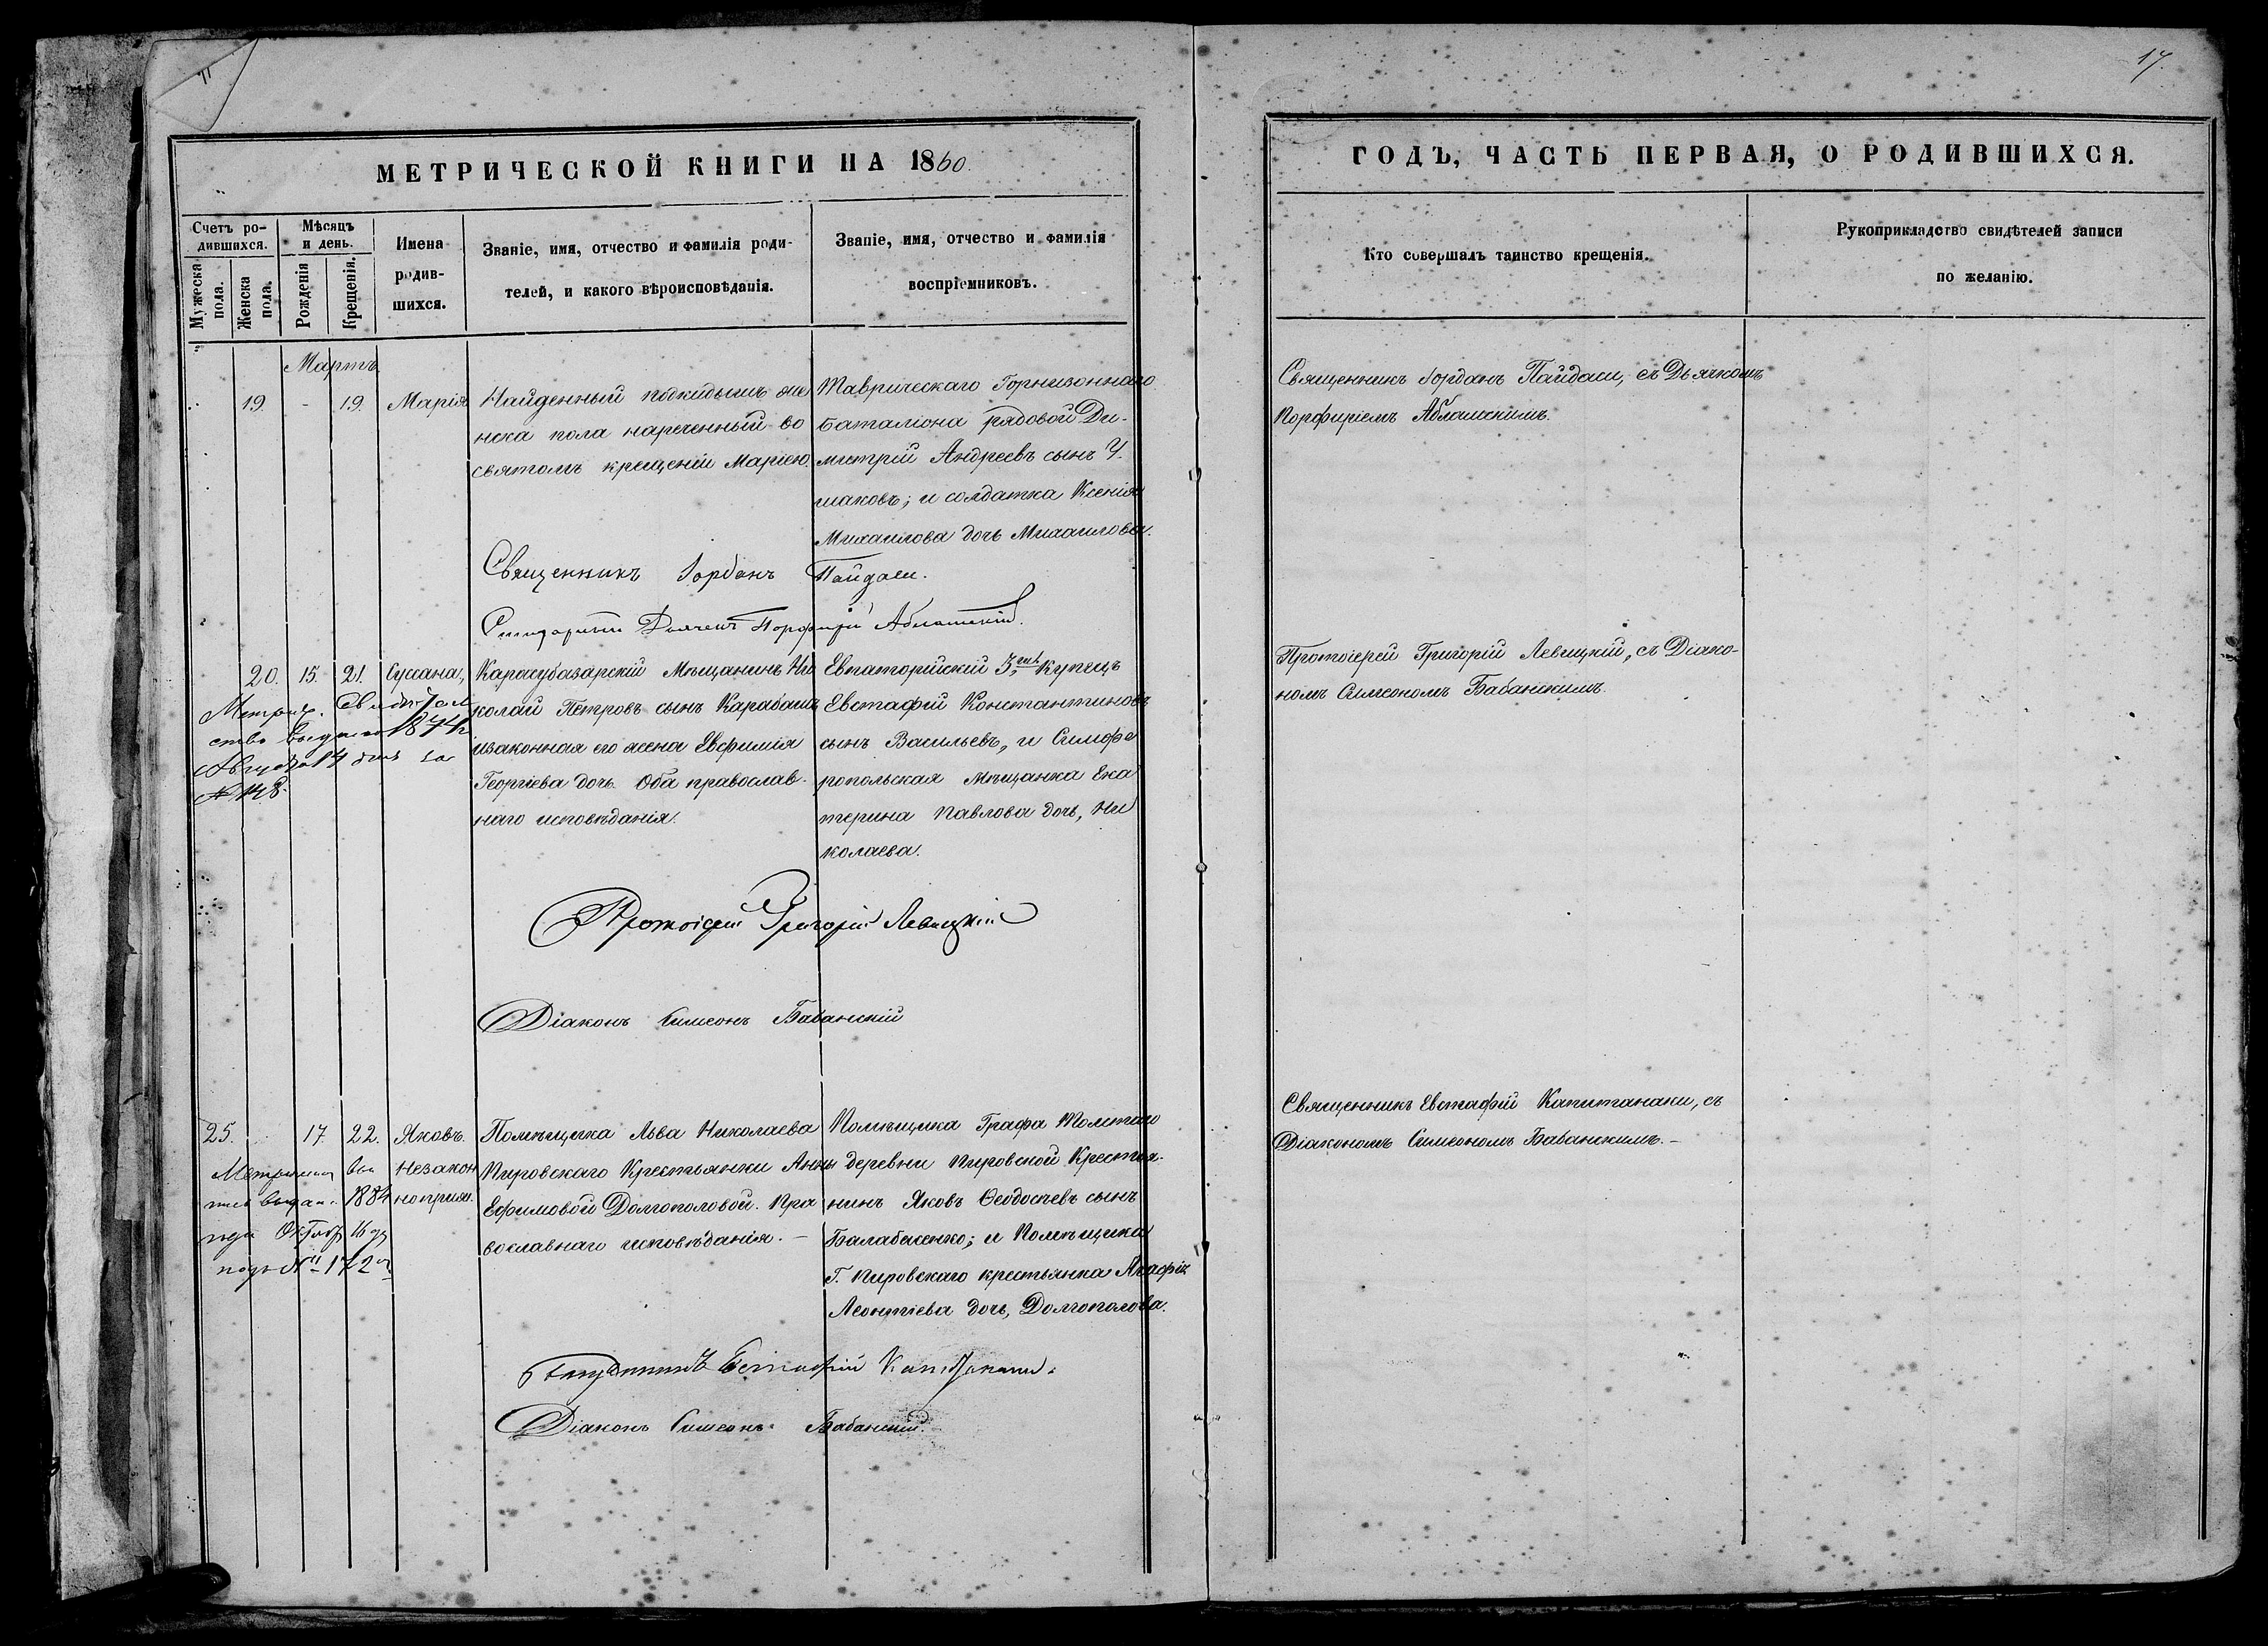 17.
МЕТРИЧЕСКОЙ КНИГИ НА 1860.
ГОДЪ, ЧАСТЬ ПЕРВАЯ, О РОДИВШИХСЯ.
Счетъ ро-
дившихся.
Мужеска пола.
Женска пола.
Мѣсяцъ
и день.
Рожденія
Крещенія.
Имена
родив-
шихся.
Званіе, имя, отчество и фамилія роди-
телей, и какого вѣроисповѣданія.
Званіе, имя, отчество и фамилія
воспріемниковъ.
Кто совершалъ таинство крещенія.
Рукоприкладство свидѣтелей записи
по желанію.
Мартъ
19. - 19. Марія
Найденный подкидышъ же
нска пола нареченный во
святомъ крещеніи Маріею.
Таврическаго Горнизоннаго
Баталіона рядовой Ди-
митрій Андреевъ сынъ У-
шаковъ; и солдатка Ксенія
Михаилова дочь Михаилова.
Священникъ Іорданъ Пайдаси, съ Дьячкомъ
Порфиріемъ Аблашскимъ.
Священникъ Іорданъ Пайдаси.
Дьячекъ Порфирій
20. 15. 21. Сусана,
Метрич. Свидѣтель
ство выдано 1874 г
Августа 14 дня за
№ 148.
Карасубазарскій Мѣщанинъ Ни
колай Петровъ сынъ Карабашъ
изаконная его жена Евфимія
Георгіева дочь. Оба православ-
наго исповѣданія.
Евпаторійский 3. гил. Купецъ
Евстафій Константиновъ
сынъ Васильевъ, и Симфе
ропольская Мѣщанка Ека
терина Павлова дочь, Ни
колаева.
Протоіерей Григорій Левицкій, съ Діако-
номъ Симеономъ Бабанскимъ.
Протоіерей Григорій Левицкій
Діаконъ Симеонъ Бабанскій
25. 17. 22. Яковъ.
незакон
ноприж.
1884
Октябр 16 д
подъ № 172
Помѣщика Льва Николаева
Пировскаго Крестьянки Анны
Ефимовой Долгополовой. Пра
вославнаго исповѣданія. -
Помѣщика Графа Толстаго
деревни Пировской Крестья-
нинъ Яковъ Ѳеодосіевъ сынъ
Балабасенко; и Помѣщика
Г. Пировскаго крестьянка Агафія
Леонтіева дочь, Долгополова.
Священникъ Евстафій Капитанаки, съ
Діакономъ Симеономъ Бабанскимъ. -
Священникъ Евстафій Капитанаки.
Діаконъ Симеонъ Бабанскій.